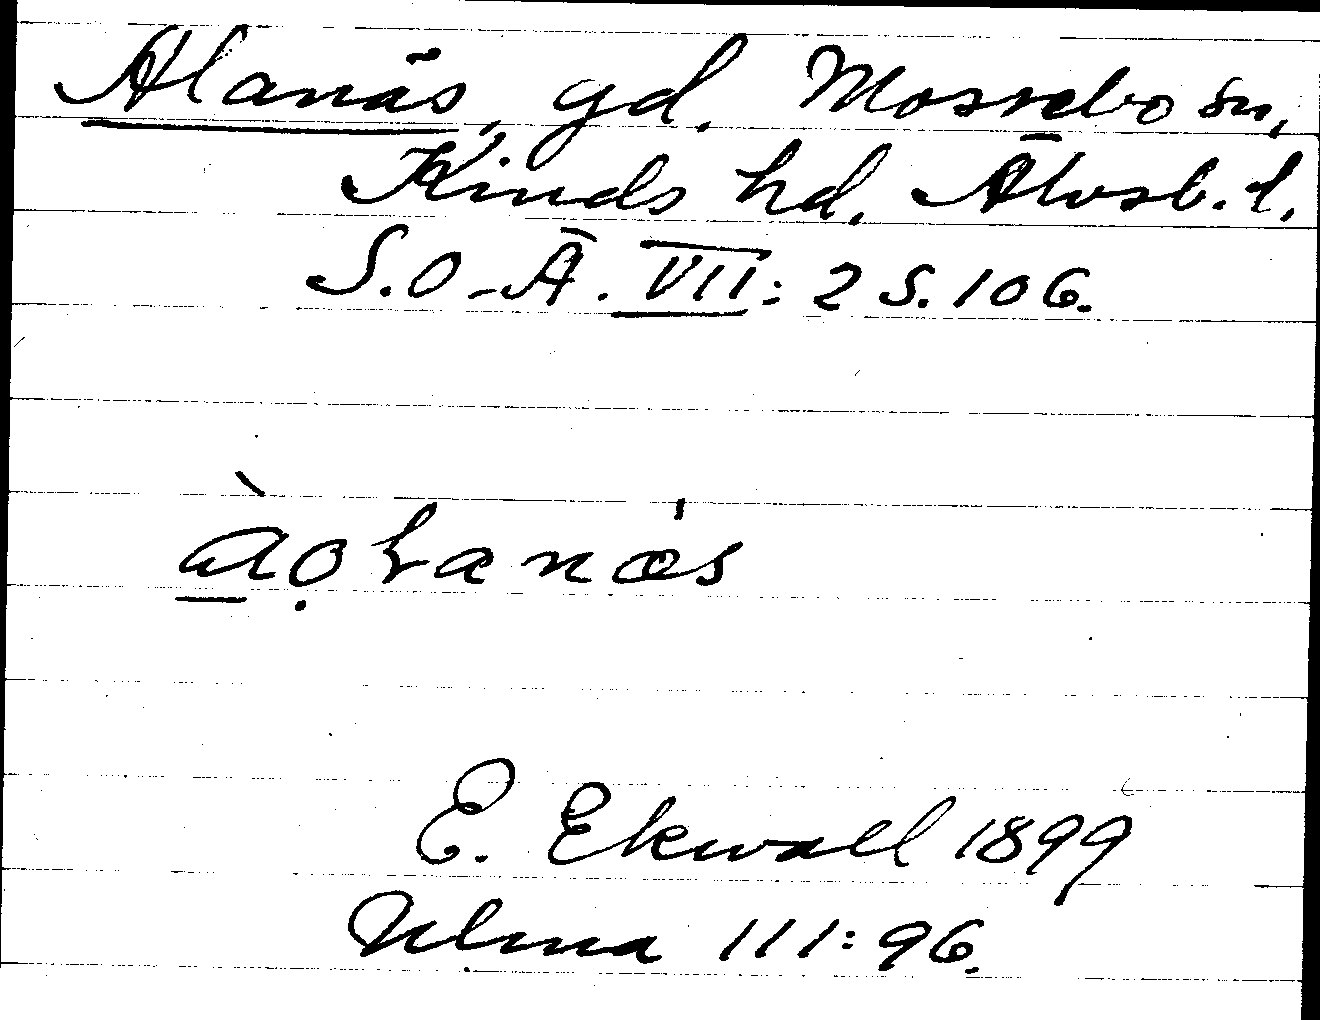 Alanäs, gd, Mossebo sn,
Kinds hd, Älvsb. l.
S.O.-Ä. VII: 2 S. 106.
E. Ekwall 1899
Ulma 111:96.